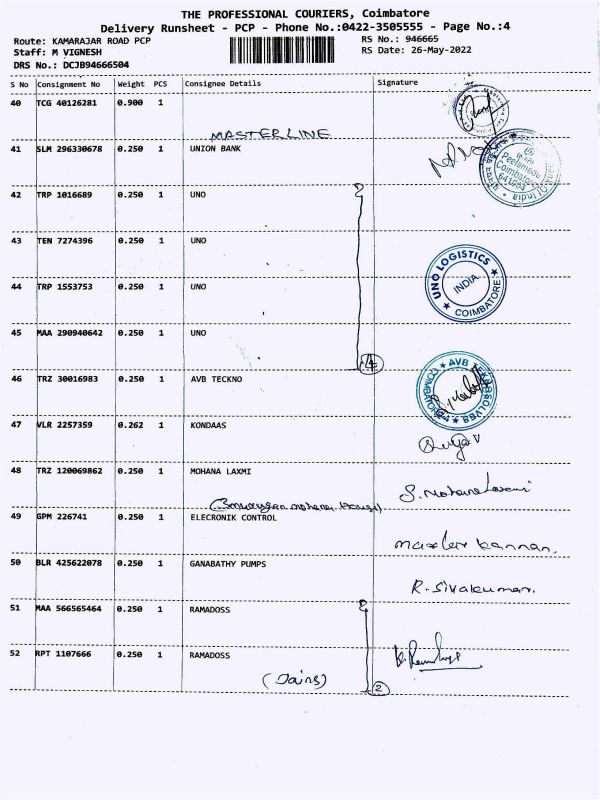 THE PROFESSIONAL COURIERS, Coimbatore
Delivery Runsheet - PCP - Phone No.:0422-3505555 - Page No.:4
Route: KAMARAJAR ROAD PCP RS No.: 946665
Staff: M VIGNESH RS Date: 26-May-2022
DRS No.: DCJB94666504
S No Consignment No Weight PCS Consignee Details Signature
40 TCG 40126281 0.900 1
MASTERLINE
41 SLM 296330678 0.250 1 UNION BANK
Peelamedu
Coimbatore
641004
India
42 TRP 1016689 0.250 1 UNO
43 TEN 7274396 0.250 1 UNO
UNO LOGISTICS
INDIA
COIMBATORE
44 TRP 1553753 0.250 1 UNO
45 MAA 290940642 0.250 1 UNO
4
46 TRZ 30016983 0.250 1 AVB TECKNO
AVB
COIMBATORE
47 VLR 2257359 0.262 1 KONDAAS
48 TRZ 120069862 0.250 1 MOHANA LAXMI
S. Mohana Laxmi
49 GPM 226741 0.250 1 ELECRONIK CONTROL
kannan.
50 BLR 425622078 0.250 1 GANABATHY PUMPS
R. Sivakumar.
51 MAA 566565464 0.250 1 RAMADOSS
52 RPT 1107666 0.250 1 RAMADOSS
(Jains)
2